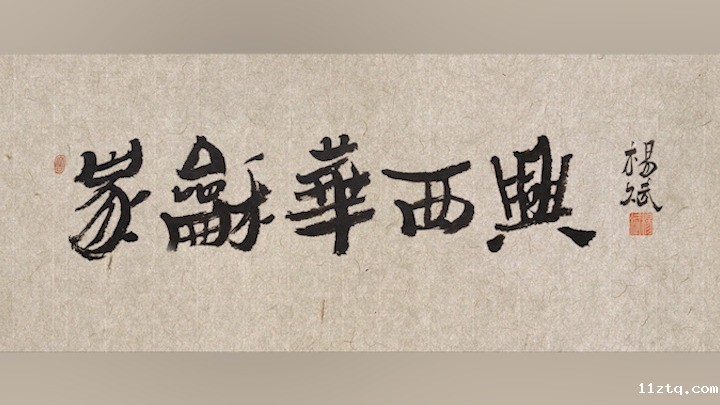 家龢華西興
楊斌
11ztq.com